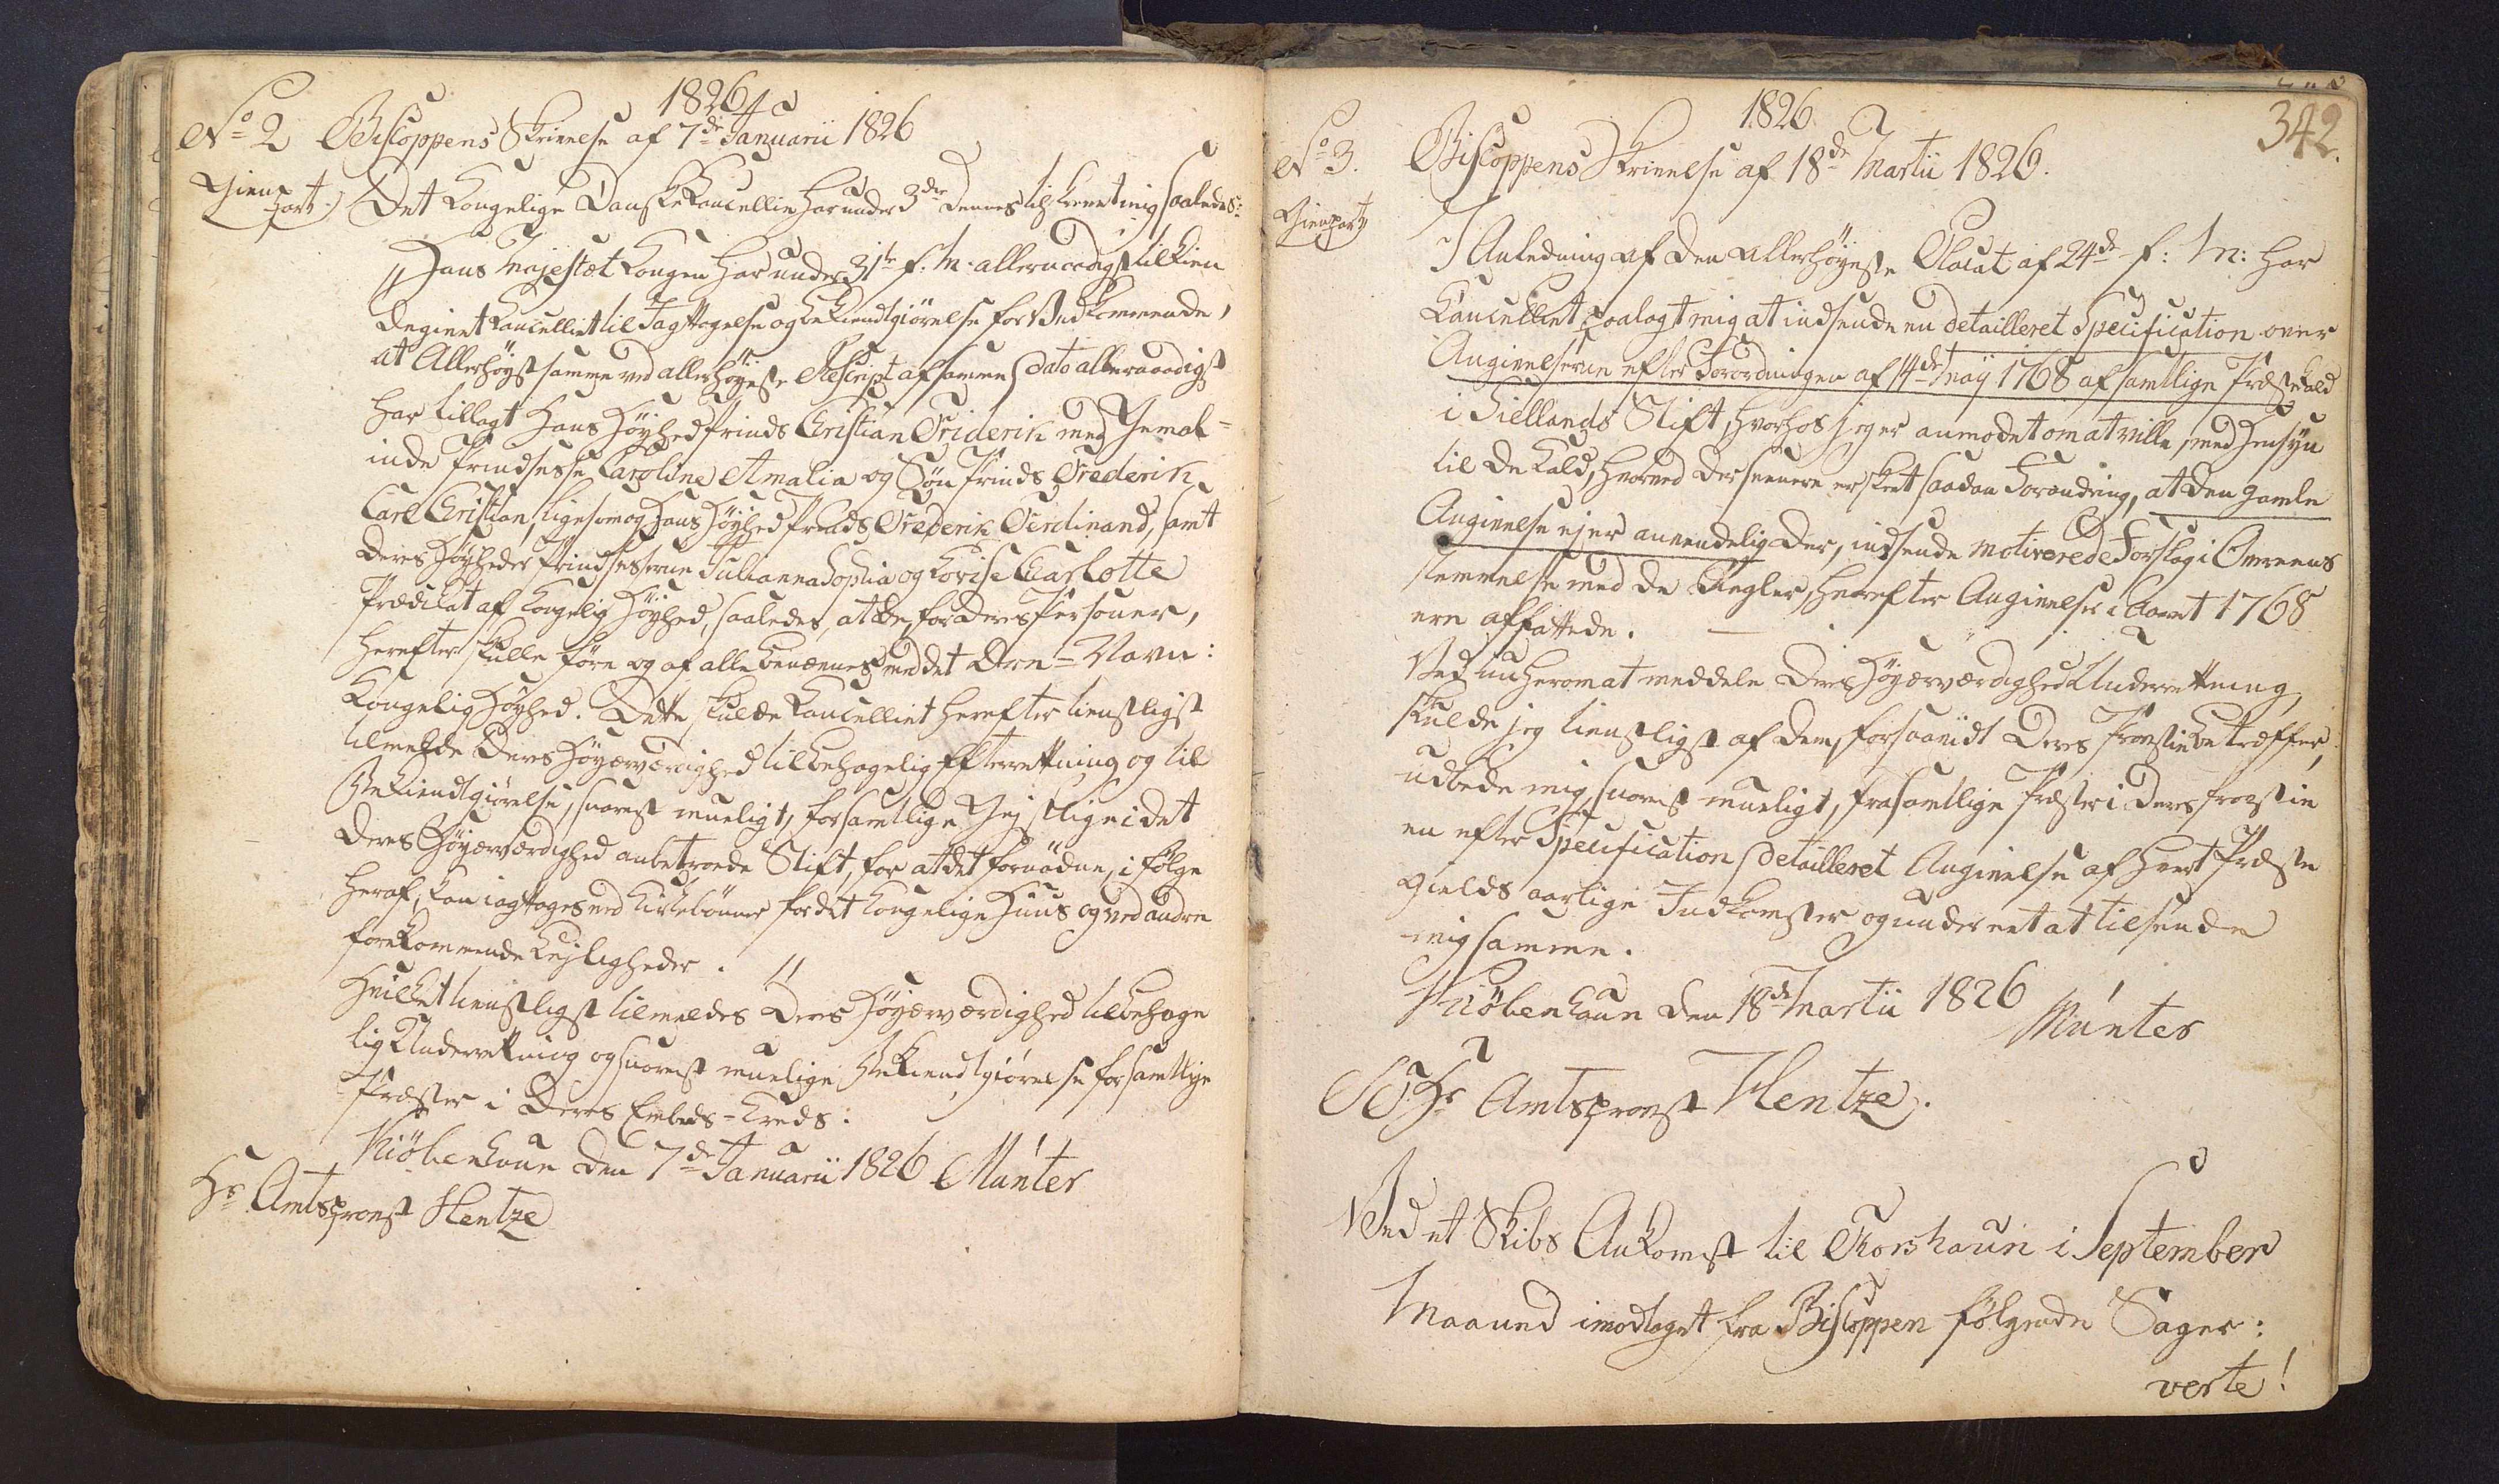 1826
No 2 Biscoppens Skrivelse af 7de Januarii 1826
Gien
part
Det Kongelige Danske Kancellie har under 3die dennes tilskrevet mig saaledes:
"Hans Majestæt Kongen har under 31te f: M: allernaadigst tilkien
degivet Kancelliet til Iagttagelse og Bekiendtgiørelse for Vedkommende,
at Allerhöystsamme ved allerhöyeste Rescript af samme Dato allernaadigst
har tillagt Hans Höyhed Prinds Christian Friderik med Gemal=
inde Prindsesse Caroline Amalia og Sön Prinds Frederik
Carl Christian, ligesom og Hans Höyhed Prinds Frederik Ferdinand, samt
Deres Höyheder Prindsesserne Julianna Sophia og Lovise Charlotte
Prædikat af Kongelig Höyhed, saaledes, at de, for deres Personer,
herefter skulle före og af alle benævnes med det Ære=Navn:
Kongelig Höyhed. Dette skulde Kancelliet herefter tienstligst
tilmelde Deres Höyærværdighed til behagelig Efterretning og til
Bekiendtgiørelse, snarest mueligt, for samtlige Gejstlige i det
Deres Höyærværdighed anbetroede Stift, for at det fornödne, i fölge
heraf, kan iagttages ved Kirkebönner for det Kongelige Huus og ved andre
forekommende Lejligheder. "
Hvilket tienstligst tilmeldes Deres Höyærværdighed til behage
lig Underretning og snarest muelige Bekiendtgiørelse for samtlige
Præster i Deres Embeds=Kreds:
Kiöbenhavn den 7de Januarii 1826 Münter
Hr Amtsprovst Hentze
342.
1826.
No 3. Biscoppens Skrivelse af 18de Martii 1826.
Gienpart
I Anledning af den allerhöyeste Placat af 24de f: M: har
Kancelliet paalagt mig at indsende en detailleret Specification over
Angivelserne efter Forordningen af 14de Maij 1768 af samtlige Præstekald
i Siellands Stift, hvorhos jeg er anmodet om at ville, med Hensyn
til de Kald, hvorved der senere er skeet saadan Forandring, at den gamle
Angivelse ej er anvendelig der, indsende motiverede Forslag i Overeens
stemmelse med de Regler, hvorefter Angivelser i Aaret 1768
ere affattede.
Ved nu herom at meddele Deres Höyærværdighed Underretning,
skulde jeg tienstligst af Dem, forsaavidt Deres Provstie betræffer,
udbede mig, snarest mueligt, fra samtlige Præster i Deres Provstie
en efter Specification detailleret Angivelse af hvert Præste
gields aarlige Indkomster og under eet at tilsende
mig samme.
Kiöbenhavn den 18de Martii 1826
Münter
Hr Amtsprovst Hentze.
Ved et Skibs Ankomst til Thorshavn i September
Maaned imodtaget fra Biscoppen fölgende Sager:
verte!